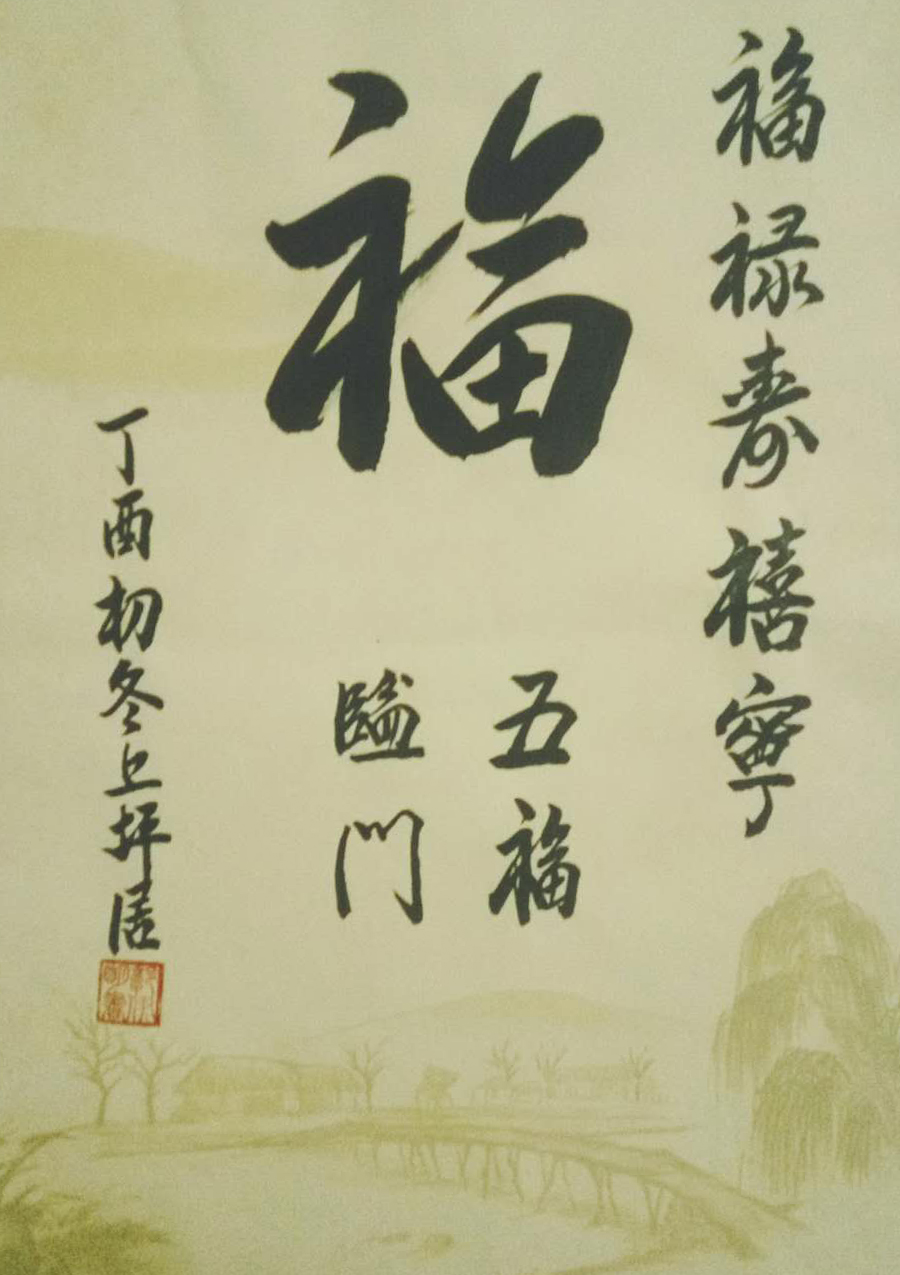 福禄寿禧寧
福
五福
臨門
丁酉初冬上坪居